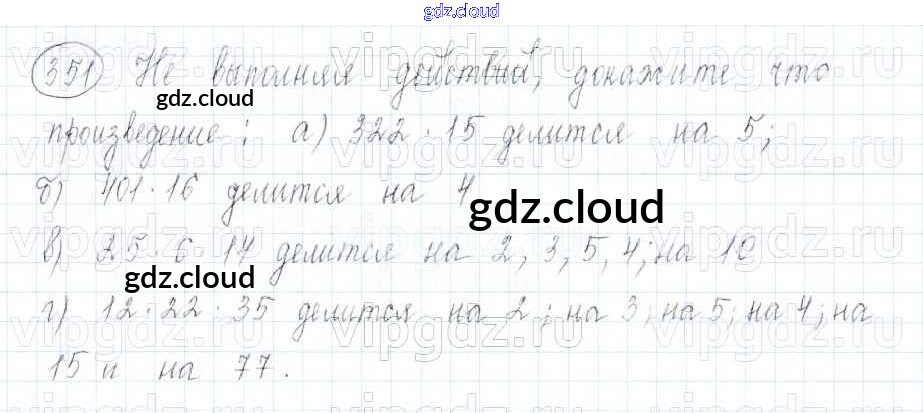 gdz.cloud
351 Не выполняя действий, докажите что
gdz.cloud
произведение: а) 322 · 15 делится на 5;
б) 401 · 16 делится на 4
gdz.cloud
в) 25 · 6 · 17 делится на 2, 3, 5, 4; на 10
gdz.cloud
г) 12 · 22 · 35 делится на 2; на 3; на 5; на 4; на
15 и на 77.